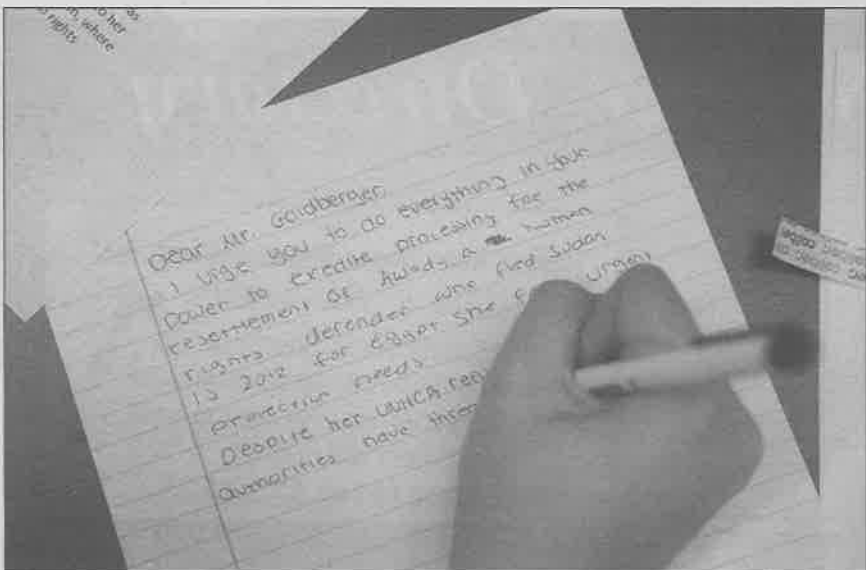 as
to her
m, where
rights
Dear Mr. Goldberger,
I urge you to do everything in your
power to expedite processing for the
resettlement of Awada, a human
rights defender who fled Sudan
in 2012 for Egypt. She urgent
protection needs.
Despite her UNHCR
authorities have